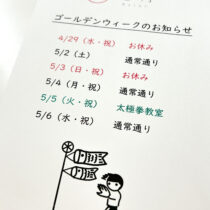 ゴールデンウィークのお知らせ
4/29（水・祝） お休み
5/2（土） 通常通り
5/3（日・祝） お休み
5/4（月・祝） 通常通り
5/5（火・祝） 太極拳教室
5/6（水・祝） 通常通り